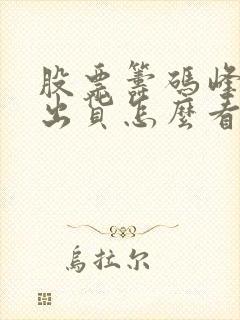 股票籌碼峰
出貨怎麼看
烏拉尔